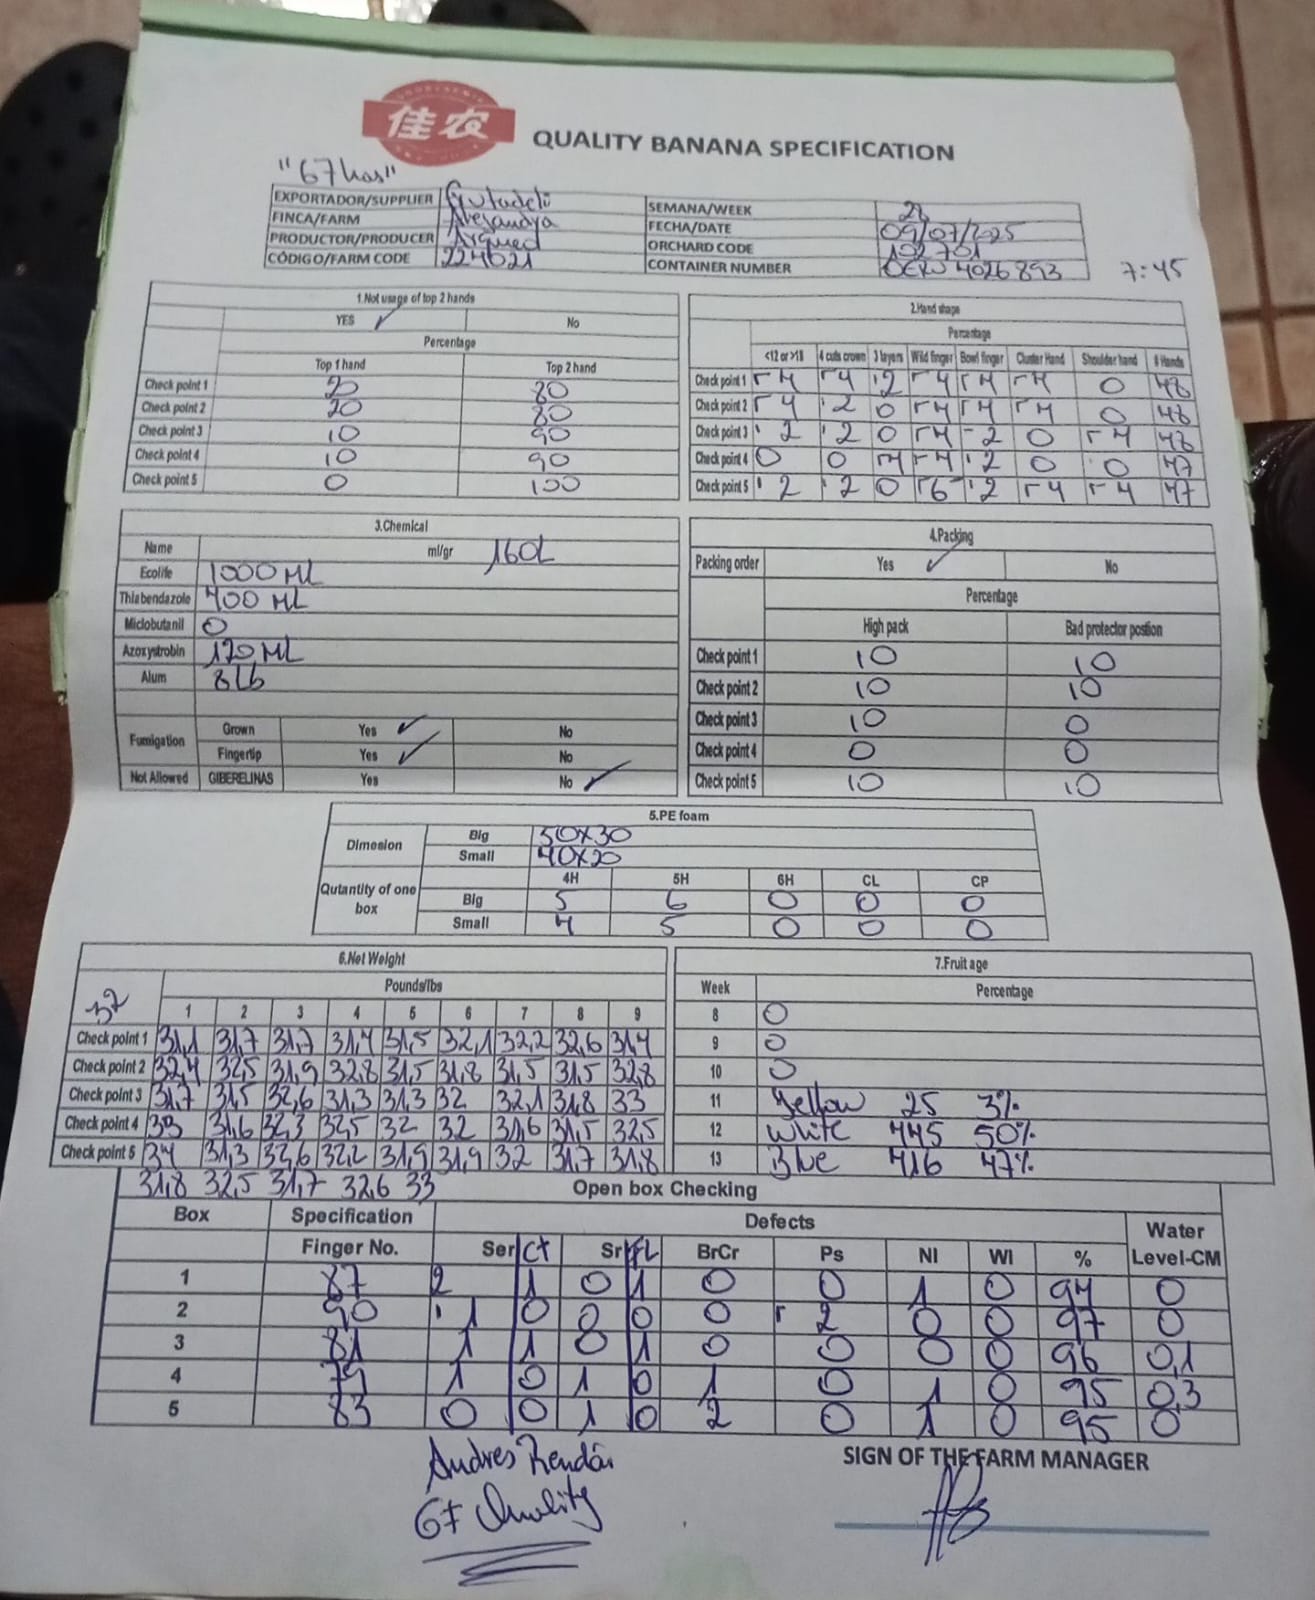 佳农
QUALITY BANANA SPECIFICATION
"67 has"
EXPORTADOR/SUPPLIER
FINCA/FARM Alejandra
PRODUCTOR/PRODUCER
CÓDIGO/FARM CODE 224621
SEMANA/WEEK 28
FECHA/DATE 09/07/2025
ORCHARD CODE 192701
CONTAINER NUMBER OERU 4026893 7:45
1.Not usage of top 2 hands
YES ✓ No
Percentage
Top 1 hand Top 2 hand
Check point 1 20 80
Check point 2 20 80
Check point 3 10 90
Check point 4 10 90
Check point 5 0 100
2.Hand shape
Percentage
<12 or >18 4 cuts crown 3 layers Wild finger Bowl finger Cluster Hand Shoulder hand # Hands
Check point 1 4 4 2 4 4 4 0 48
Check point 2 4 2 0 4 4 4 0 48
Check point 3 2 2 0 4 2 0 4 48
Check point 4 0 0 4 4 2 0 0 47
Check point 5 2 2 0 6 2 4 4 47
3.Chemical
Name ml/gr 160L
Ecolife 1000 ML
Thiabendazole 400 ML
Miclobutanil 0
Azoxystrobin 120 ML
Alum 8Lb
Fumigation Grown Yes ✓ No
Fingertip Yes ✓ No
Not Allowed GIBERELINAS Yes No ✓
4.Packing
Packing order Yes ✓ No
Percentage
High pack Bad protector postion
Check point 1 10 10
Check point 2 10 10
Check point 3 10 0
Check point 4 0 0
Check point 5 10 10
5.PE foam
Dimesion Big 50x30
Small 40x20
4H 5H 6H CL CP
Qutantity of one box Big 5 6 0 0 0
Small 4 5 0 0 0
6.Net Weight
32 Pounds/lbs
1 2 3 4 5 6 7 8 9
Check point 1 31,1 31,7 31,7 31,4 31,5 32,1 32,2 32,6 31,4
Check point 2 32,4 32,5 31,9 32,8 31,5 31,8 31,5 31,5 32,8
Check point 3 31,7 31,5 32,6 31,3 31,3 32 32,1 31,8 33
Check point 4 33 31,6 32,3 32,5 32 32 31,6 31,5 32,5
Check point 5 34 31,3 32,6 32,2 31,9 31,9 32 31,7 31,8
31,8 32,5 31,7 32,6 33
7.Fruit age
Week Percentage
8 0
9 0
10 0
11 Yellow 25 3%
12 White 445 50%
13 Blue 416 47%
Open box Checking
Box Specification Defects Water
Finger No. Ser Ct Sr FL BrCr Ps NI WI % Level-CM
1 87 2 1 0 1 0 0 1 0 94 0
2 90 1 0 0 0 0 2 0 0 97 0
3 81 1 1 0 1 0 0 0 0 96 0,1
4 79 1 0 1 0 1 0 1 0 95 0,3
5 83 0 0 1 0 2 0 1 0 95 0
Andres Rendón
GF Quality
SIGN OF THE FARM MANAGER